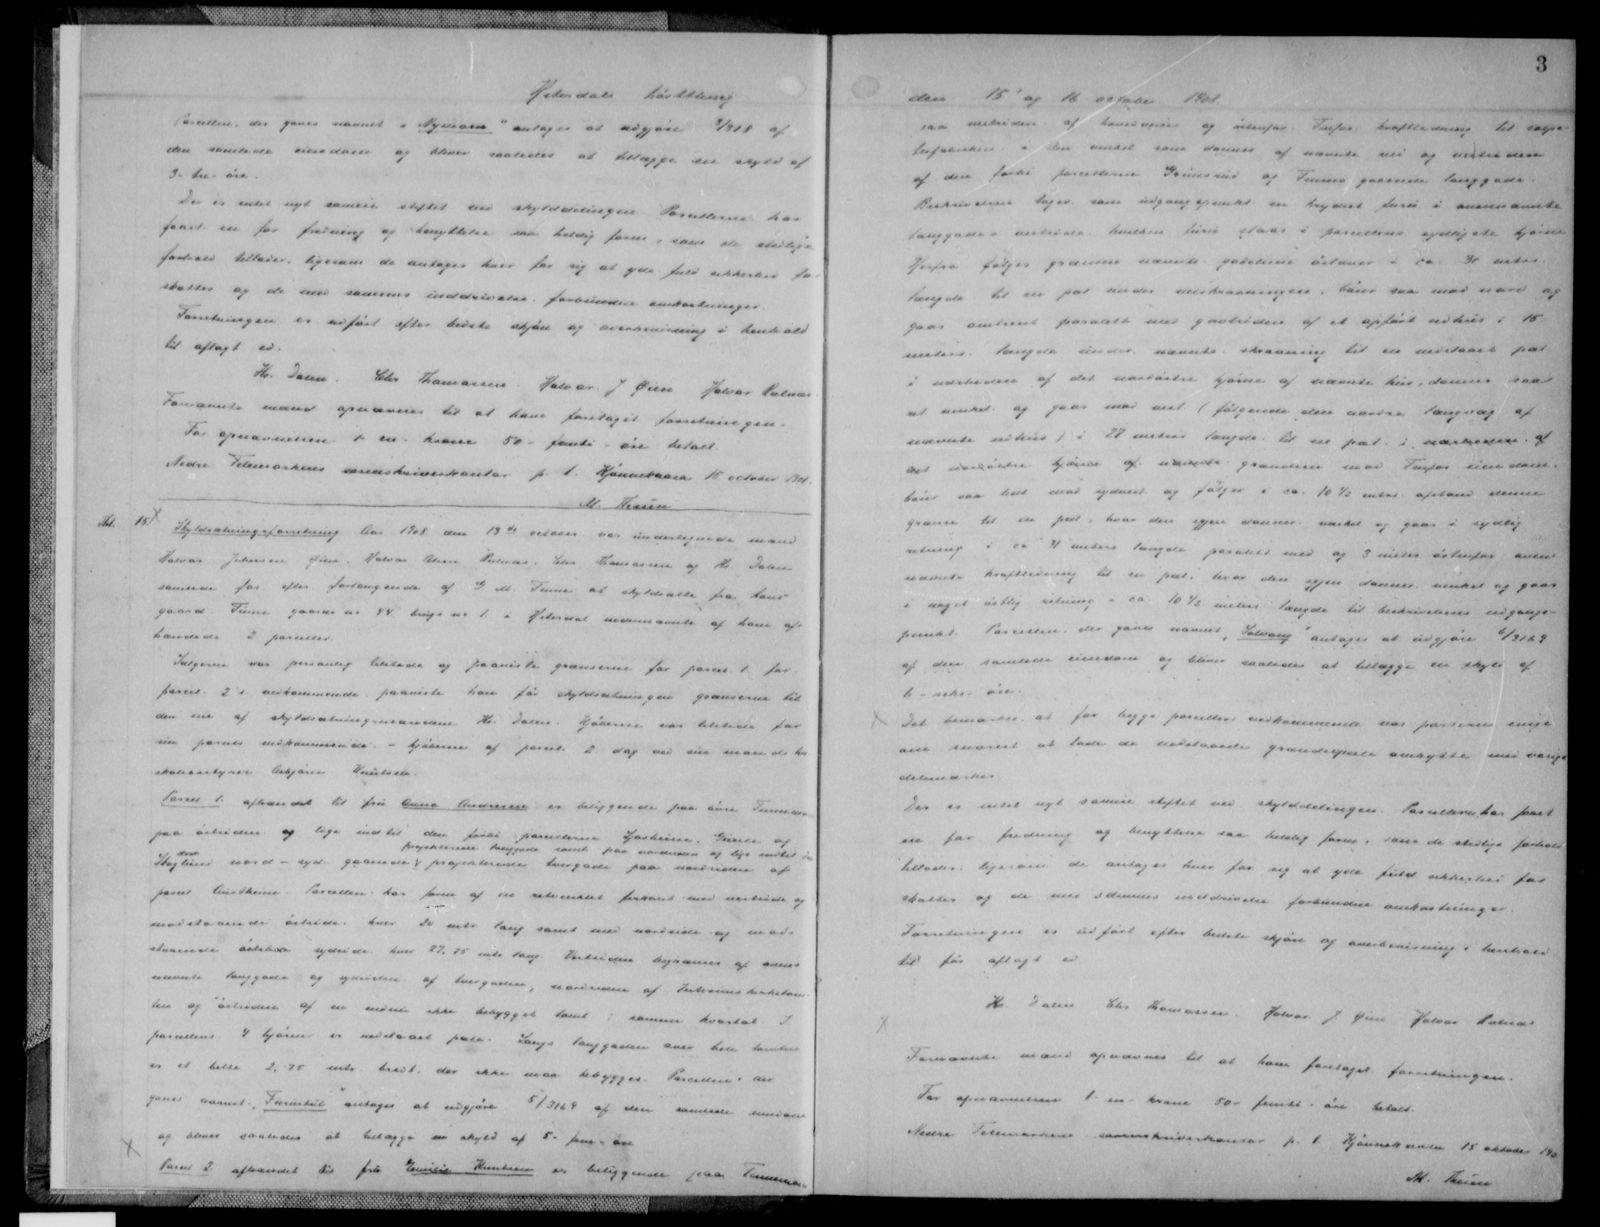 Hiterdals høstthing
Parcellen, der gaves navnet "Nymoen" antages at udgjøre 3/3168 af
den samlede eiendom og bliver saaledes at tillægge en skyld af
3- tre- øre.
Der er intet nyt sameie stiftet ved skylddelingen. Parcellerne har
faaet en for fredning og benyttelse saa heldig form, som de stedlige
forhold tillader, ligesom de antages hver for sig at yde fuld sikkerhed for
skatter og de med sammes inddrivelse forbundne omkostninger.
Forretningen er udført efter bedste skjøn og overbevisning i henhold
til aflagt ed.
H. Dalen. Chr Thomassen. Halvor J Øien Halvor Rulnæs
Fornævnte mænd opnævnes til at have foretaget forretningen.
For opnævnelsen 1- en- krone 50- femti- øre betalt.
Nedre Telemarkens sorenskriverkontor p. t. Hjønnekaasa 15 october 1908.
M. Theien
15. Skyldsætningsforretning Aar 1908 den 13de october var undertegnede mænd
Halvor Johnsen Øien, Halvor Rulnæs, Chr Thomassen og H. Dalen
samlede for efter forlangende af G. M. Tinne at skyldsætte fra hans
gaard Tinne gaards nr 44 brugs nr 1. i Hiterdal nedennævnte af ham af-
hændede 2 parceller.
Sælgeren var personlig tilstede og paaviste grænserne for parcel 1. for
parcel 2's vedkommende paaviste han før skyldsætningen grænserne til
den ene af skyldsætningsmændene H. Dalen. Kjøberne var tilstede for
sin parcels vedkommende - kjøberne af parcel 2 dog ved sin mand hr
skolebestyrer Asbjørn Knutsen.
Parcel 1. afhændet til fru Anna Andresen er beliggende paa øvre Tinnemoen
paa østsiden og lige indtil den forbi parcellerne Gunde og
projekterede langgade samt paa nordsiden og lige indtil den
Skoglund nord - syd gaaende projekterede tvergade paa nordsiden af
parcel Parcellen har form af en retvinklet firkant med vestside og
modstaaende østside hver 20 mtr lang samt med nordside og mod-
staaende sydside hver 27,75 mtr lang. Vestsiden begrænses af oven-
nævnte langgade og sydsiden af tvergaden, nordsiden af
ten og østsiden af en endnu ikke bebygget tomt i samme kvartal. I
parcellens 4 hjørner er nedslaaet pæle. Langs langgaden over hele tomten
er et belte 2,75 mtr. bredt, der ikke maa bebygges. Parcellen, der
gaves navnet antages at udgjøre 5/3169 af den samlede eiendom
og bliver saaledes at tillægge en skyld af 5- fem- øre
Parcel 2. afhændet til fru Emilie Knutsen er beliggende paa Tinnemoen
3
den 15' og 16 october 1908.
saa vestsiden af og østenfor kraftledning til salpe-
terfabriken i den vinkel som dannes af nævnte vei og vestsiden
af den forbi parcellerne Grimsrud og gaaende langgade.
Beskrivelsen tager som udgangspunkt en krydset furu i ovennævnte
langgades vestside hvilken furu staar i parcellens sydligste hjørne
Herfra følges grænsen nævnte gadelinie østover i ca. 31 meters
længde til en pæl under melskraaningen, bøier saa mod nord og
gaar omtrent paralelt med gavlsiden af et opført udhus i 15
meters længde under nævnte skraaning til en nedslaaet pæl
i nærheden af det nordøstre hjørne af nævnte hus, danner saa
ret vinkel og gaar mod vest (følgende den nordre langvæg af
nævnte udhus) i 27 meters længde til en pæl i nærheden af
det nordøstre hjørne af nævnte grændsen mod eiendom,
bøier saa lidt mod sydvest og følger i ca. 10 1/2 meters afstand denne
grænse til en pæl, hvor den igjen danner vinkel og gaar i sydlig
retning i ca 31 meters længde paralelt med og 3 meter østenfor oven-
nævnte kraftledning til en pæl, hvor den igjen danner vinkel og gaar
i noget østlig retning i ca. 10 1/2 meters længde til beskrivelsens udgangs-
punkt. Parcellen, der gaves navnet "Solvang" antages at udgjøre 6/3169
af den samlede eiendom og bliver saaledes at tillægge en skyld af
6- seks- øre.
Det bemærkes, at for begge parcellers vedkommende var parterne enige
om snarest at lade de nedslaaede grændsepæle ombytte med varige
delesmærker.
Der er intet nyt sameie stiftet ved skylddelingen. Parcellerne har faaet
en for fredning og benyttelse saa heldig form, som de stedlige forhold
tillader, ligesom de antages hver for sig at yde fuld sikkerhed for
skatter og de med sammes inddrivelse forbundne omkostninger.
Forretningen er udført efter bedste skjøn og overbevisning i henhold
til før aflagt ed
H. Dalen Chr Thomassen. Halvor J Øien Halvor Rulnæs
Fornævnte mænd opnævnes til at have foretaget forretningen.
For opnævnelsen 1- en- krone 50- femti- øre betalt.
Nedre Telemarkens sorenskriverkontor p. t. Hjønnekaasa 15 oktober 190
M. Theien